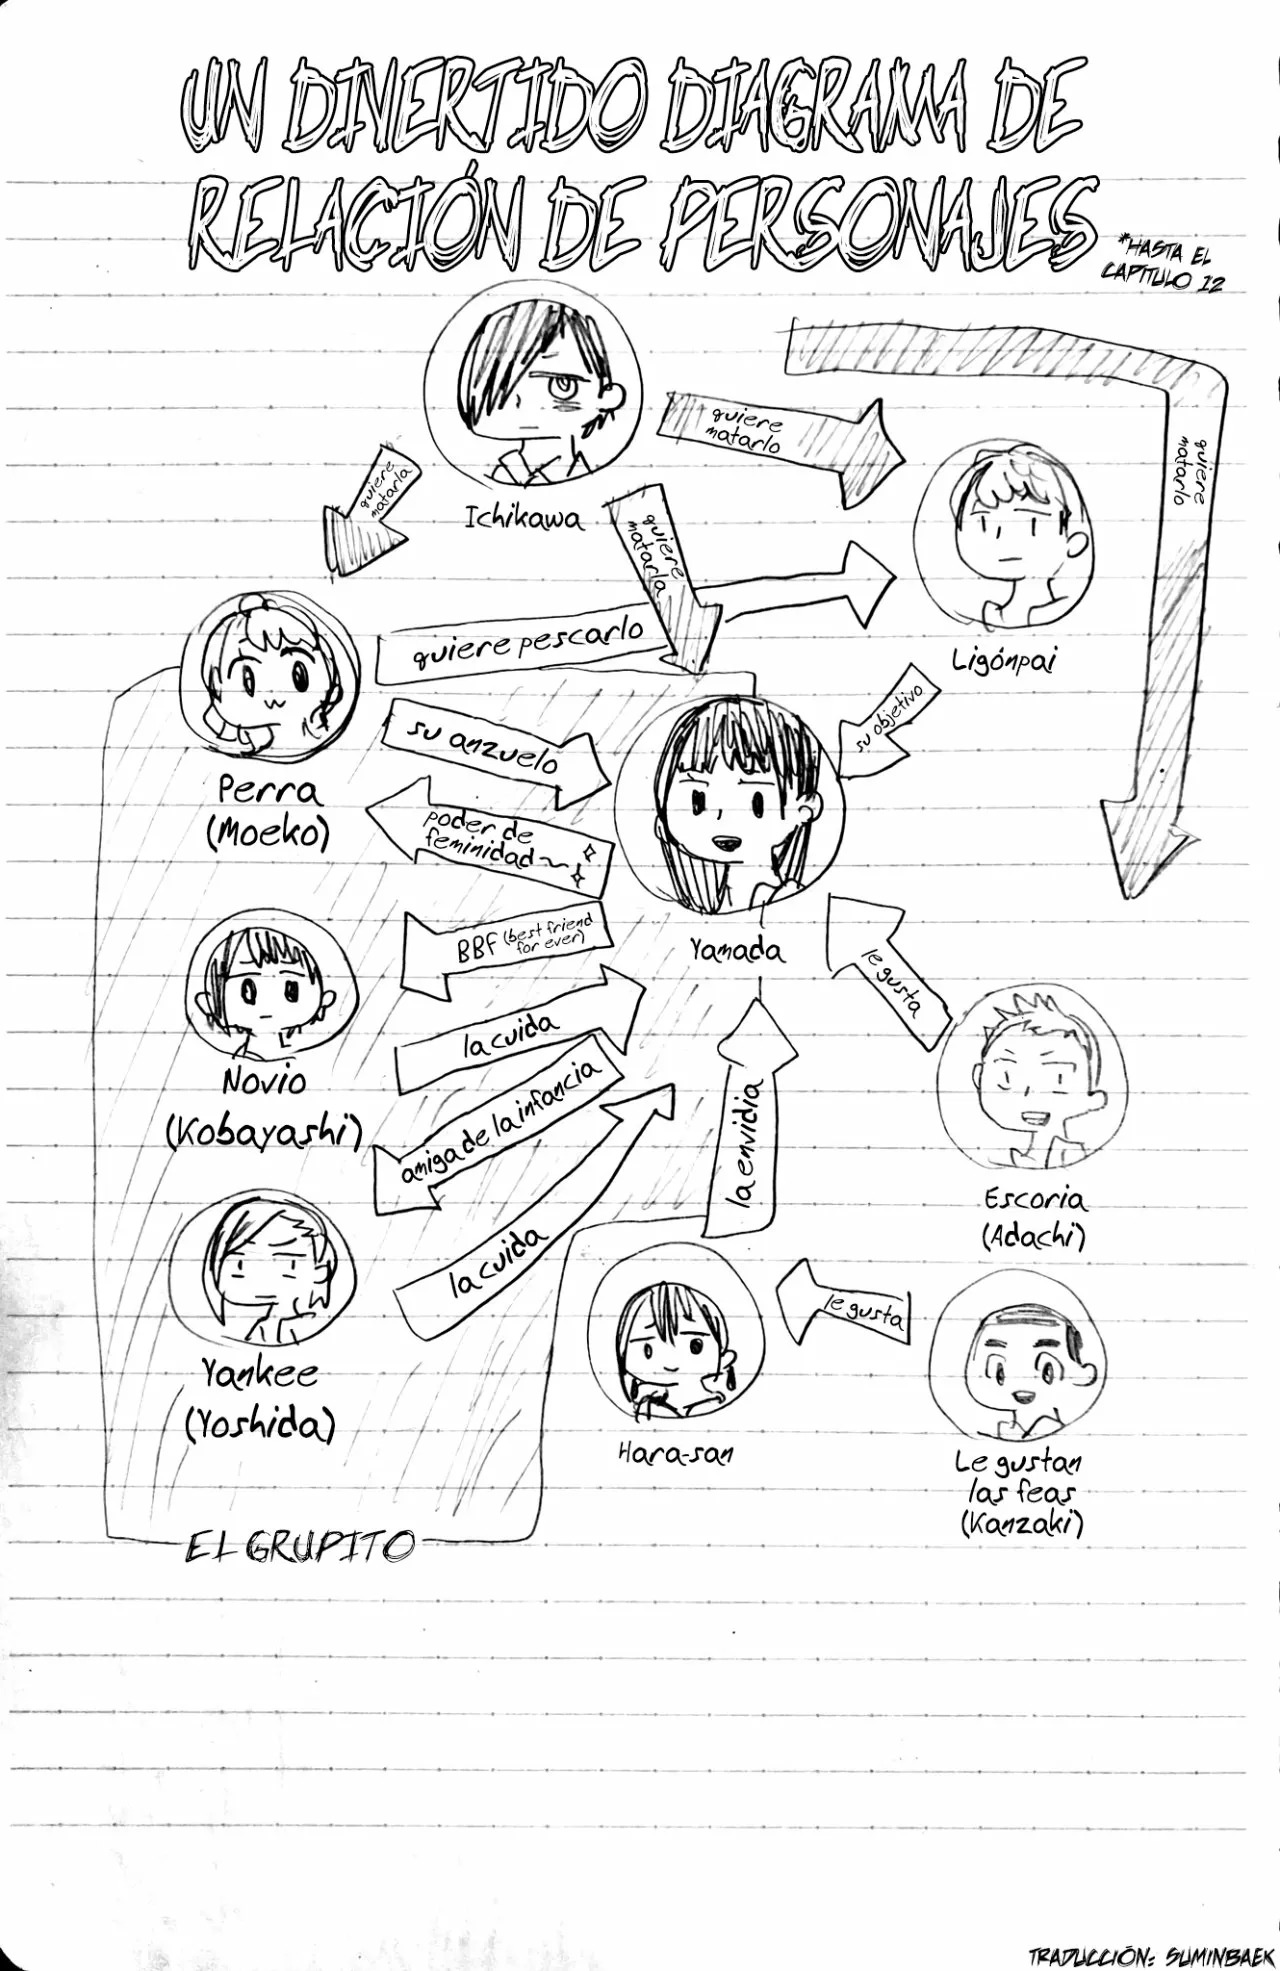 UN DIVERTIDO DIAGRAMA DE
RELACIÓN DE PERSONAJES
*HASTA EL
CAPÍTULO 12
quiere
matarlo
quiere
matarlo
quiere
matarla
Ichikawa
quiere
matarla
quiere pescarlo
Ligónpai
su objetivo
su anzuelo
Perra
(Moeko)
poder de
feminidad~
BBF (best friend
for ever)
Yamada
le gusta
la cuida
Novio
(Kobayashi)
amiga de la infancia
la envidia
la cuida
Escoria
(Adachi)
le gusta
Yankee
(Yoshida)
Hara-san
Le gustan
las feas
(Kanzaki)
EL GRUPITO
TRADUCCIÓN: SUMINBAEK